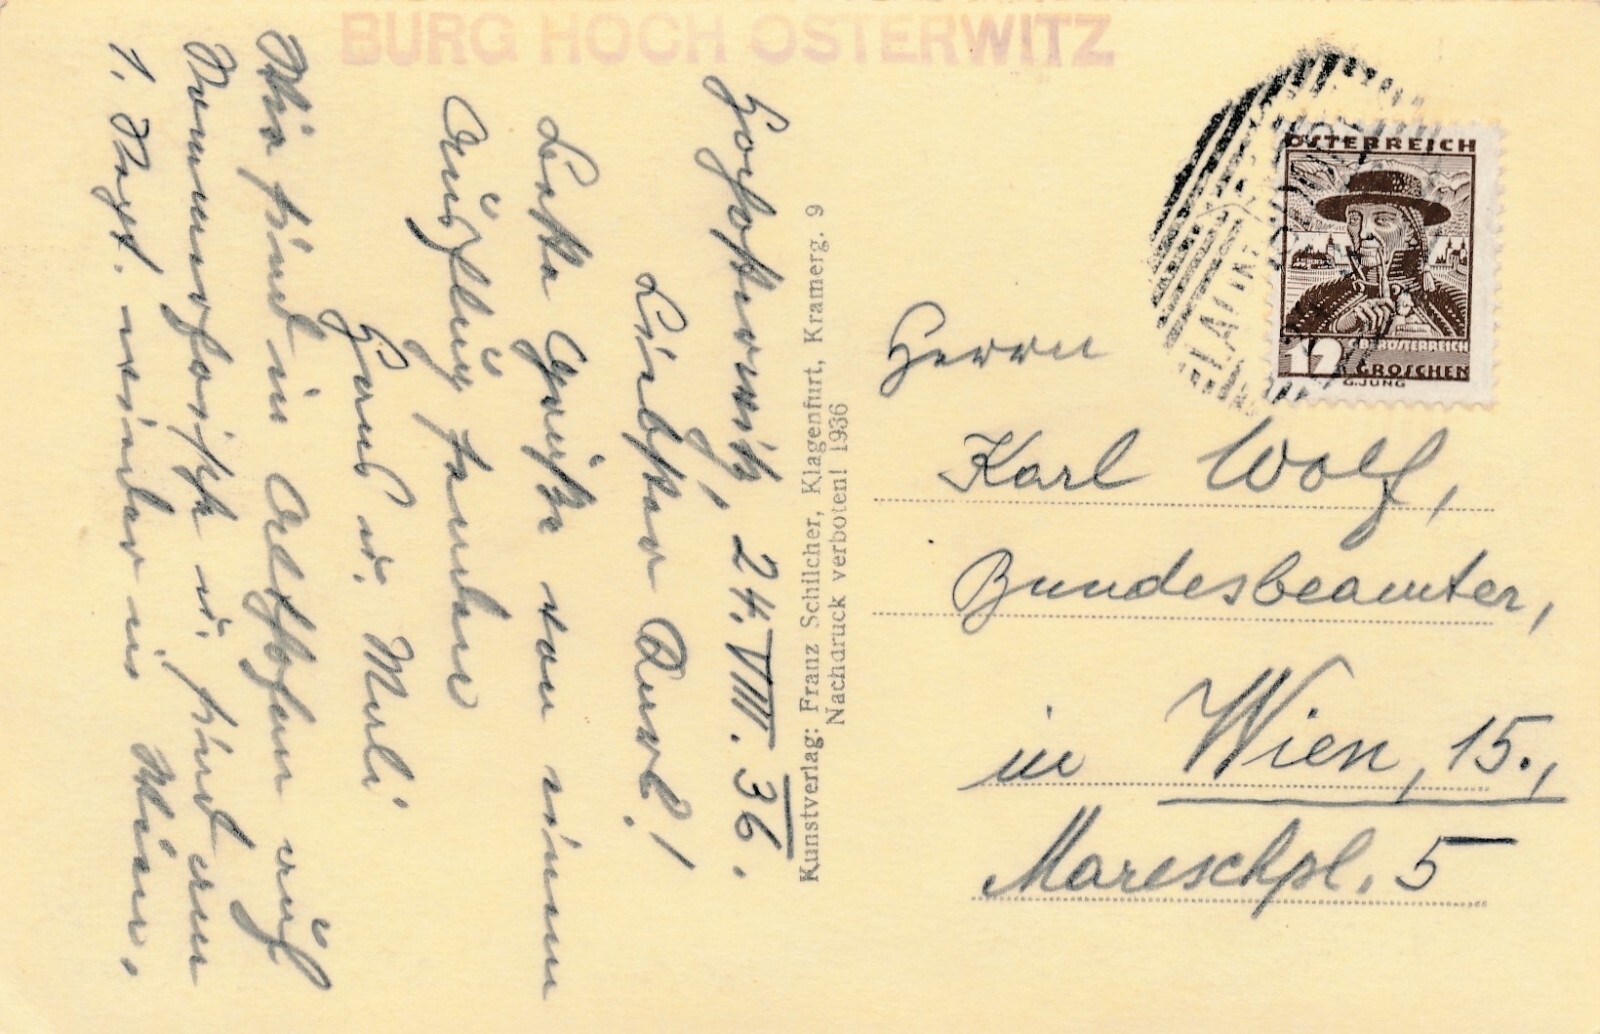 BURG HOCH OSTERWITZ
Hochosterwitz, 24. VIII. 36.
Liebster Karl!
Beste Grüße von einem
Ausflug senden
Hans u.
Wir sind in Althofen auf
Sommerfrische u. sind am
1. Sept. wieder in Wien.
Kunstverlag: Franz Schilcher, Klagenfurt, Kramerg. 9
Nachdruck verboten! 1936
ÖSTERREICH
12 OBERÖSTERREICH
GROSCHEN
G.JUNG
Herrn
Karl Wolf,
Bundesbeamter,
in Wien, 15.,
Mareschpl. 5